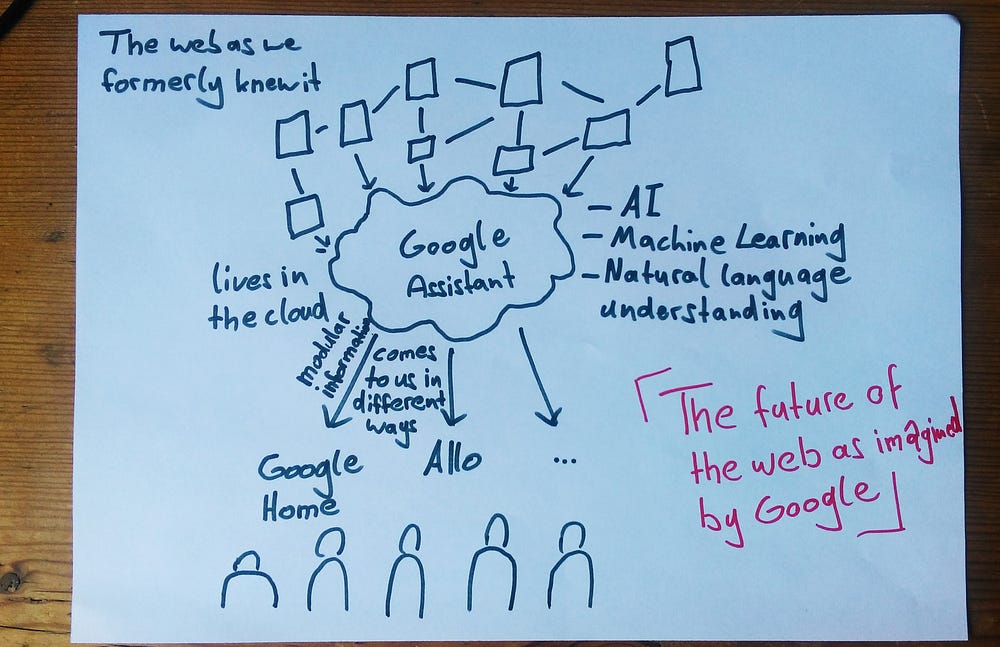 The web as we
formerly knew it
Google
Assistant
– AI
– Machine Learning
– Natural language
understanding
lives in
the cloud
modular
information
comes
to us in
different
ways
Google
Home
Allo
...
The future of
the web as imagined
by Google